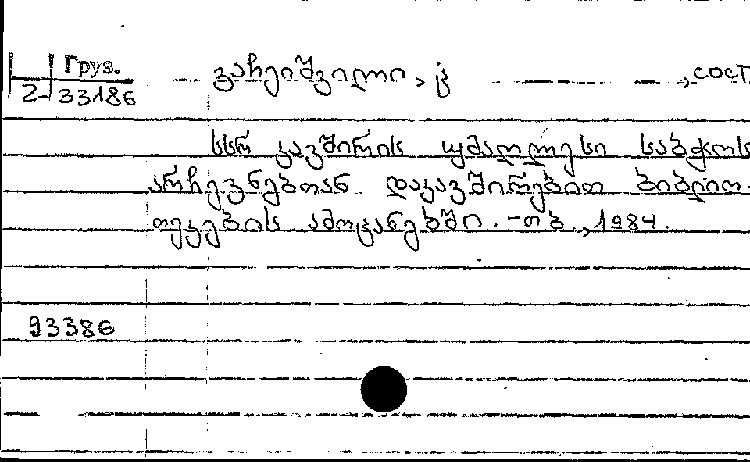 Груз.
2-33186
გარეიშვილი, ჰ , сост
სსრ კავშირის უმაღლესი საბჭოს
არჩევნებთან დაკავშირებით ბიბლიო-
თეკების ამოცანებში. -თბ., 1984.
93386